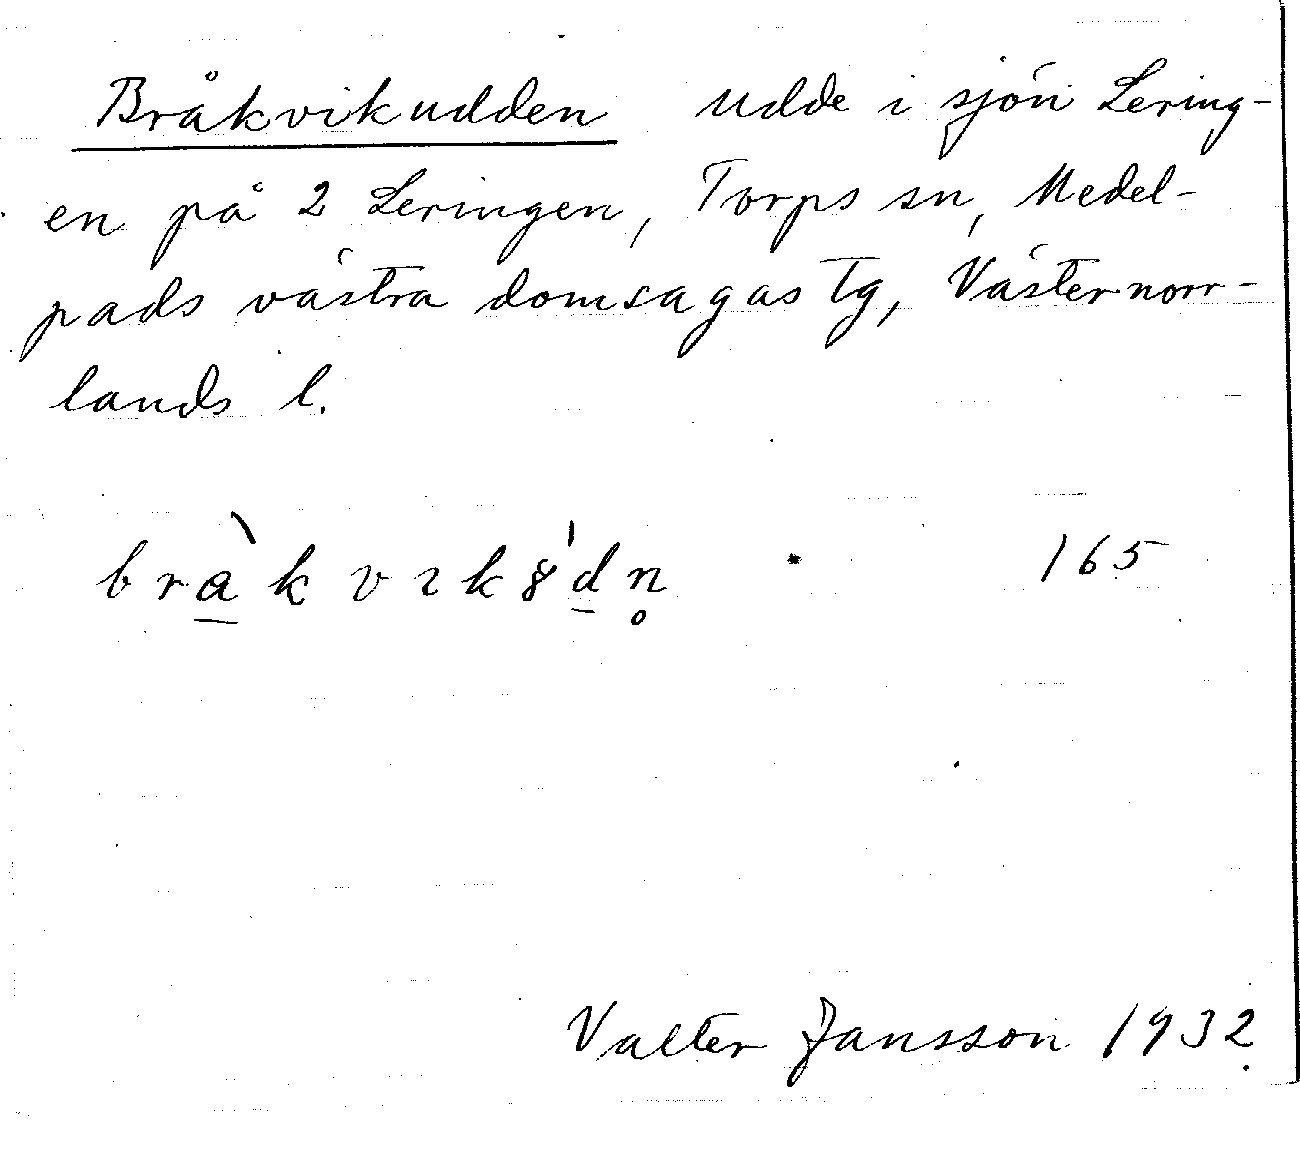 Bråkvikudden udde i sjön Lering-
en på 2 Leringen, Torps sn, Medel-
pads västra domsagas tg, Västernorr-
lands l.
brà̲kvıkȣ'd̲n̥ 165
Valter Jansson 1932